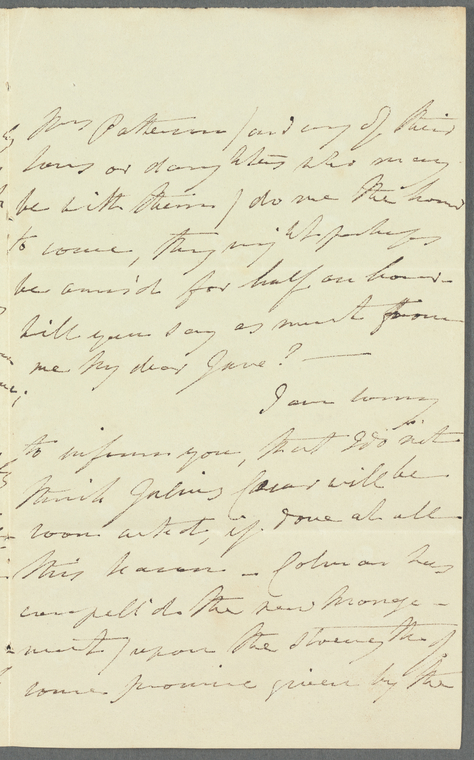 Mrs Patterson / and any of their
sons or daughters who may
be with them / do me the honor
to come, they might perhaps
be amus'd for half an hour -
Will you say as much from
me my dear Jane? —
I am sorry
to inform you, that I do not
think Julius Cæsar will be
soon acted, if done at all
this season - Colman has
compell'd the new Manage-
ment / upon the strength of
some promise given by the